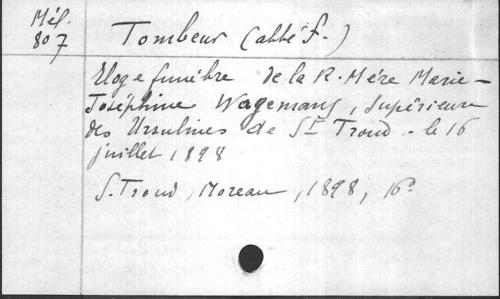 Mél.
807
Tombeur (abbé F.)
Eloge funèbre de la R. Mère Marie-
Joséphine Wagemans, Supérieure
des Ursulines de St Trond - le 16
juillet 1898
S. Trond, Moreau, 1898, 16°